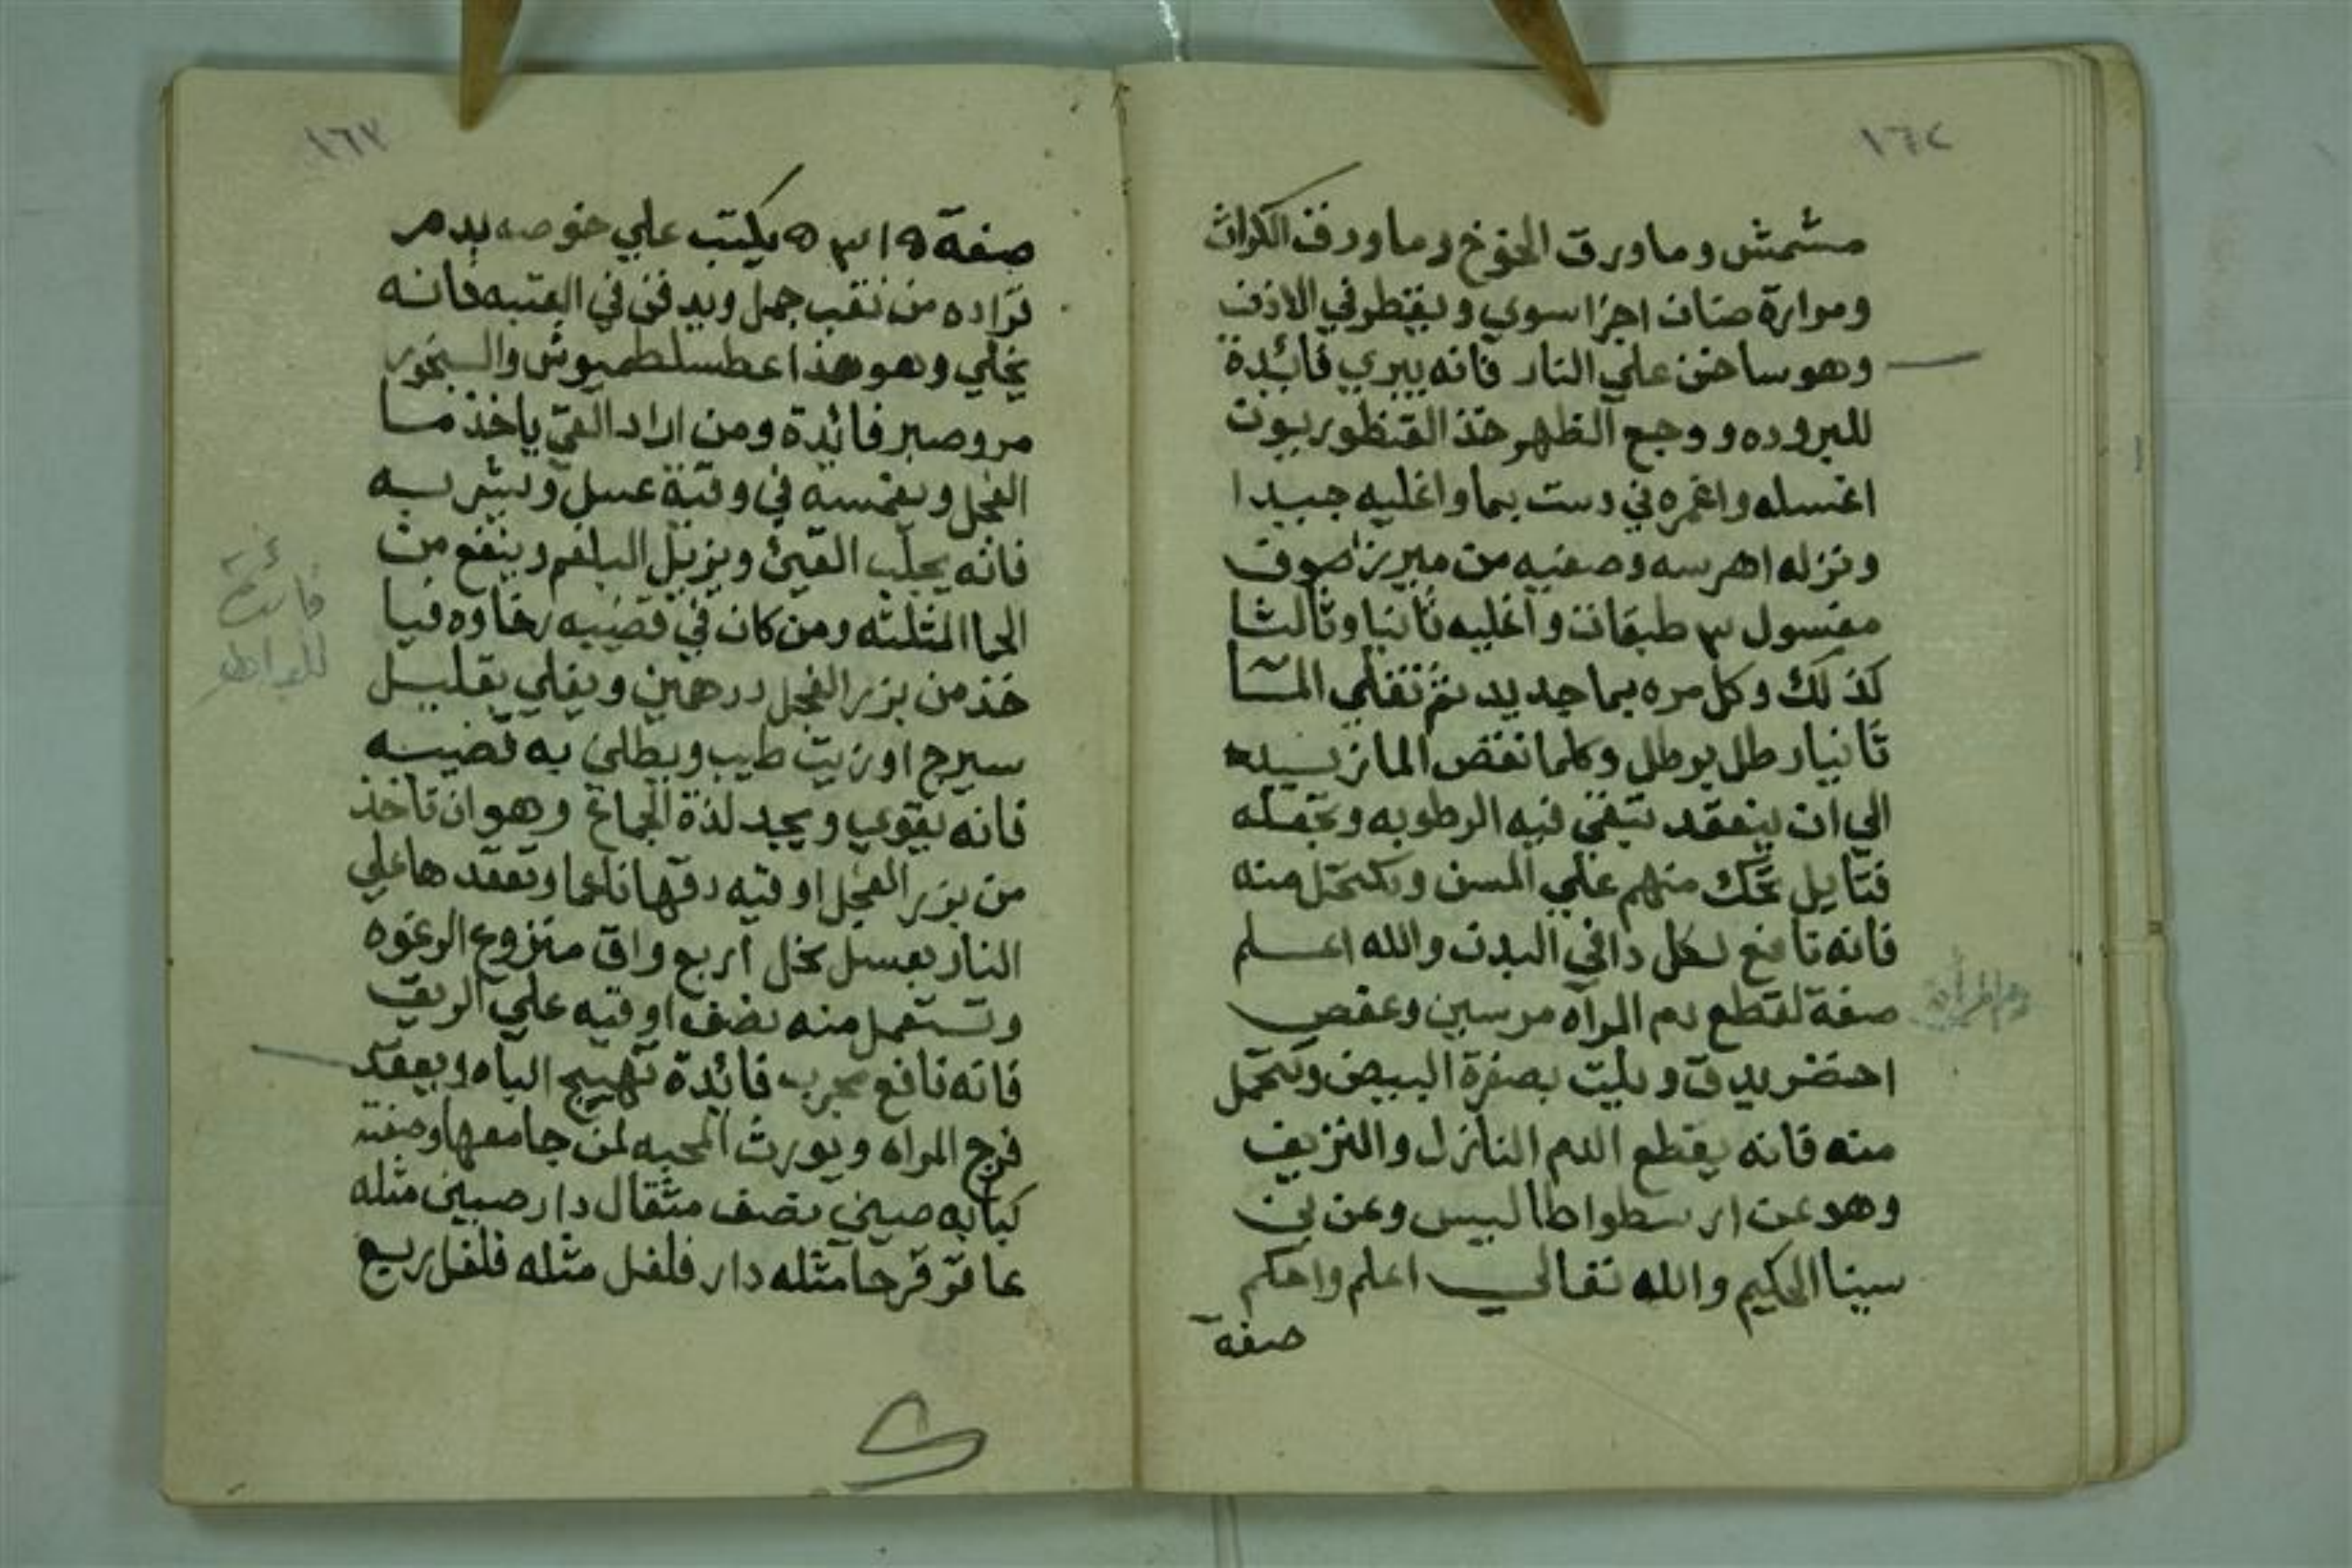 ١٦٢
مشمش وما ورق الخوخ وما ورق الكرات
ومرارة ضان اجزا سوي ويقطر في الاذن
وهو ساخن علي النار فانه يبري فائدة
للبروده ووجع الظهر خذ القنطوريون
اغسله واغمره في دست بما واغليه جيدا
ونزله اهرسه وصفيه من ميزر صوف
مغسول ٣ طبقات واغليه ثانيا وثالثا
كذلك وكل مره بما جديد ثم تغلي المآ
ثانيا رطل برطل وكلما نقص الما نزيده
الي ان ينعقد تبقي فيه الرطوبه وتجعله
فتايل تحك منهم علي المسن وتكتحل منه
فانه نافع لكل دا في البدن والله اعلم
صفة لقطع دم المرآه مرسين وعفص
اخضر يدق ويلت بصفرة البيض وتتحمل
منه فانه يقطع الدم النازل والنزيف
وهو عن ارسطواطاليس وعن بن
سينا الحكيم والله تعالي اعلم واحكم
صفة
دم المرأة
١٦٣
صفة ١٥ ٣ ٥ يكتب علي خوصه بدم
قراده من نقب جمل ويدفن في العتبه فانه
يخلي وهو هذا عطسلطميوش والبخور
مر وصبر فائدة ومن اراد القي ياخذ ما
الفجل ويغمسه في وقية عسل ويشربه
فانه يجلب القيئ ويزيل البلغم وينفع من
الحما المثلثه ومن كان في قضيبه رخاوه فيا
خذ من بزر الفجل درهمين ويغلي بقليل
سيرج او زيت طيب ويطلي به قضيبه
فانه يقوي ويجد لذة الجماع وهو ان تاخذ
من بزر الفجل اوقيه دقها ناعما وتعقدها علي
النار بعسل نحل اربع واق منزوع الرغوه
وتستعمل منه نصف اوقيه علي الريق
فانه نافع مجرب فائدة تهييج الباه ويعقد
فرج المراه ويورث المحبه لمن جامعها وصفته
كبابه صيني نصف مثقال دار صيني مثله
عاقر قرحا مثله دار فلفل مثله فلفل ربع
فائدة